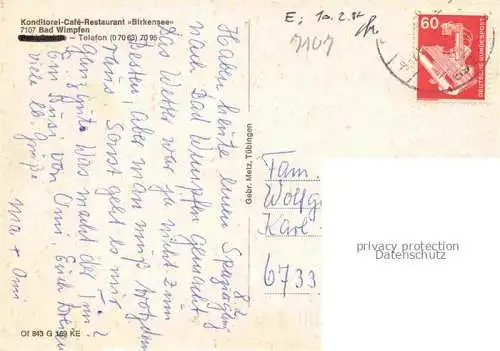 Konditorei-Café-Restaurant »Birkensee«
7107 Bad Wimpfen
– Telefon (0 70 63) 70 95
E; 10.2.82
7107
60
DEUTSCHE BUNDESPOST
8.2.
Haben heute einen Spaziergang
nach Bad Wimpfen gemacht.
Das Wetter war ja nicht zum
Besten, aber man muß trotzdem
raus. Sonst geht es mir
ganz gut. Was macht der Tim?
Ein Bussi von Omi.
Viele lb. Grüße
Ma + Omi
Gebr. Metz, Tübingen
Fam.
Wolfg
Karl-
6733
privacy protection
Datenschutz
Of 843 G 169 KE